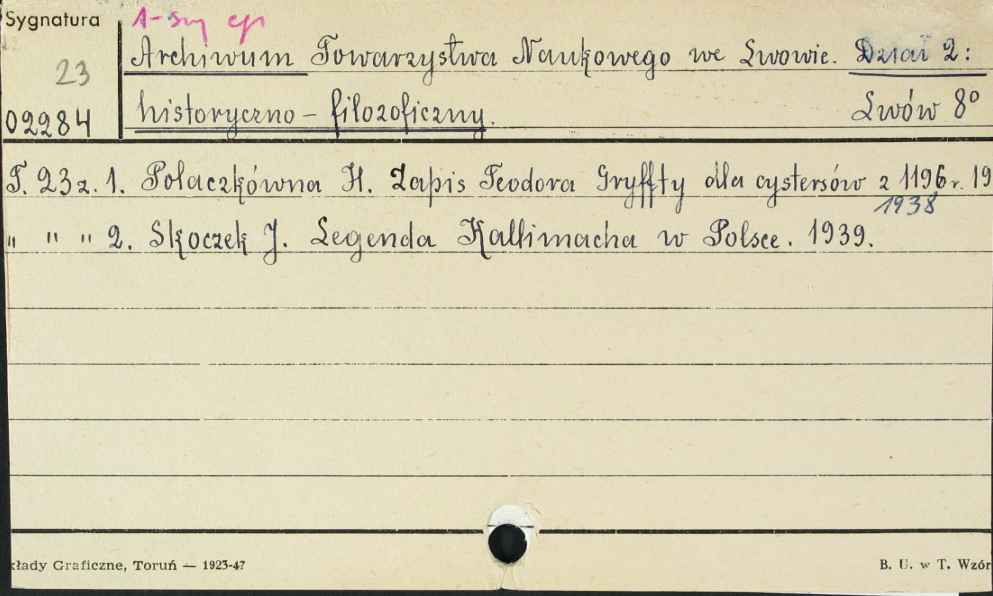 Sygnatura
23
02284
Archiwum Towarzystwa Naukowego we Lwowie. Dział 2:
historyczno - filozoficzny. Lwów 8°
T. 23 z. 1. Polaczkówna H. Zapis Teodora Gryffty dla cystersów z 1196 r. 19
1938
" " " 2. Skoczek J. Legenda Kallimacha w Polsce. 1939.
kłady Graficzne, Toruń — 1923-47
B. U. w T. Wzór